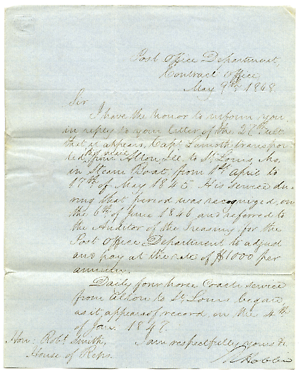 Post Office Department,
Contract Office
May 9th 1848
Sir
I have the honor to inform you
in reply to your letter of the 26th ult
that it appears, Capt. Lamoth, transpor-
ted the mails from Alton Ill. to St Louis Mo.
in Steam Boat, from 8th April to
17th of May 1845. His service du-
ring that period was recognized, on
the 6th of June 1846 and referred to
the Auditor of the Treasury for the
Post Office Department to adjust
and pay at the rate of $1000 per
annum.
Daily four horse Coach service
from Alton to St Louis began
as it appears of record, on the 4th
of Jan 1847.
I am respectfully yours &c
Hon: Robt Smith,
House of Reps.
Hobbie